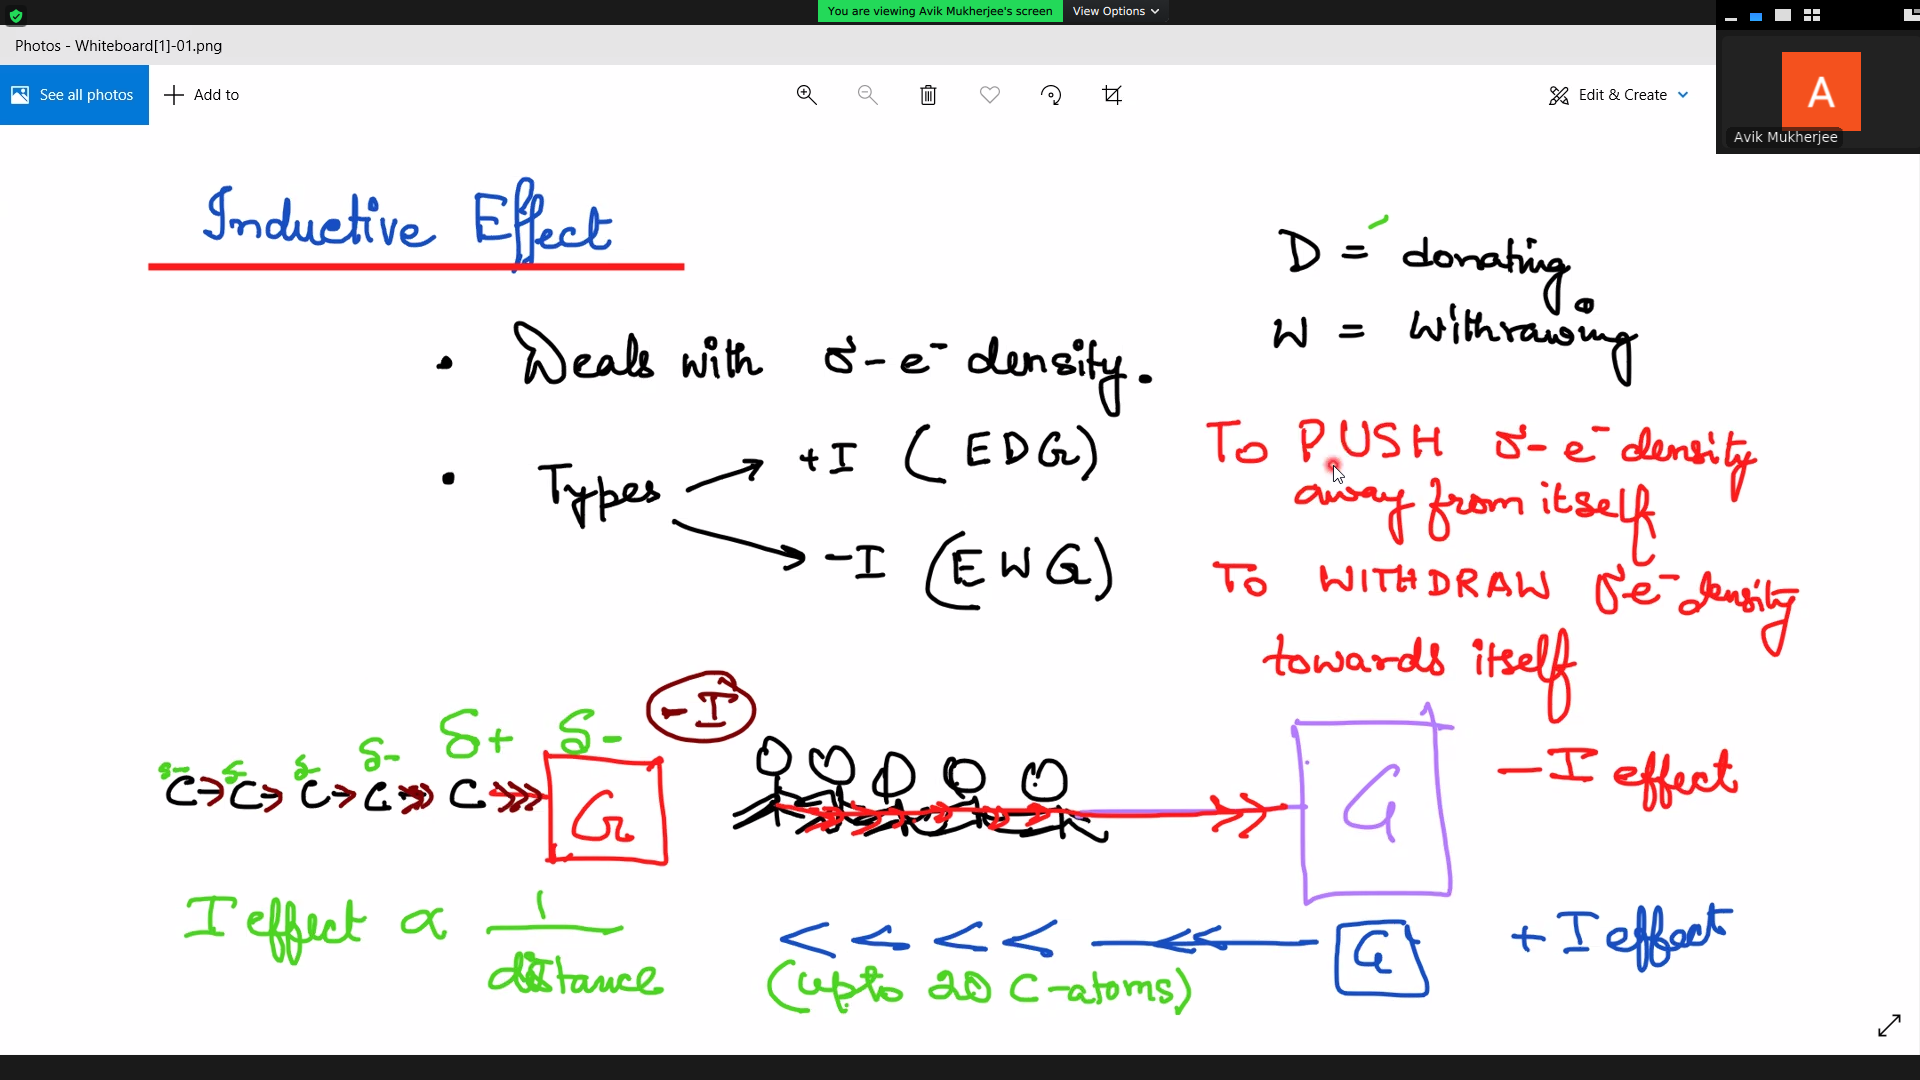 You are viewing Avik Mukherjee's screen View Options
Photos - Whiteboard[1]-01.png
See all photos Add to Edit & Create
A
Avik Mukherjee
Inductive Effect
D = donating
W = Withrawing
• Deals with σ-e⁻ density.
• Types
+I (EDG)
-I (EWG)
To PUSH σ-e⁻ density
away from itself
To WITHDRAW σe⁻ density
towards itself
-I
δ- δ- δ- δ- δ+ δ-
C C C C C G
G
-I effect
I effect ∝ 1
distance
< < < < G
+I effect
(upto 20 C-atoms)